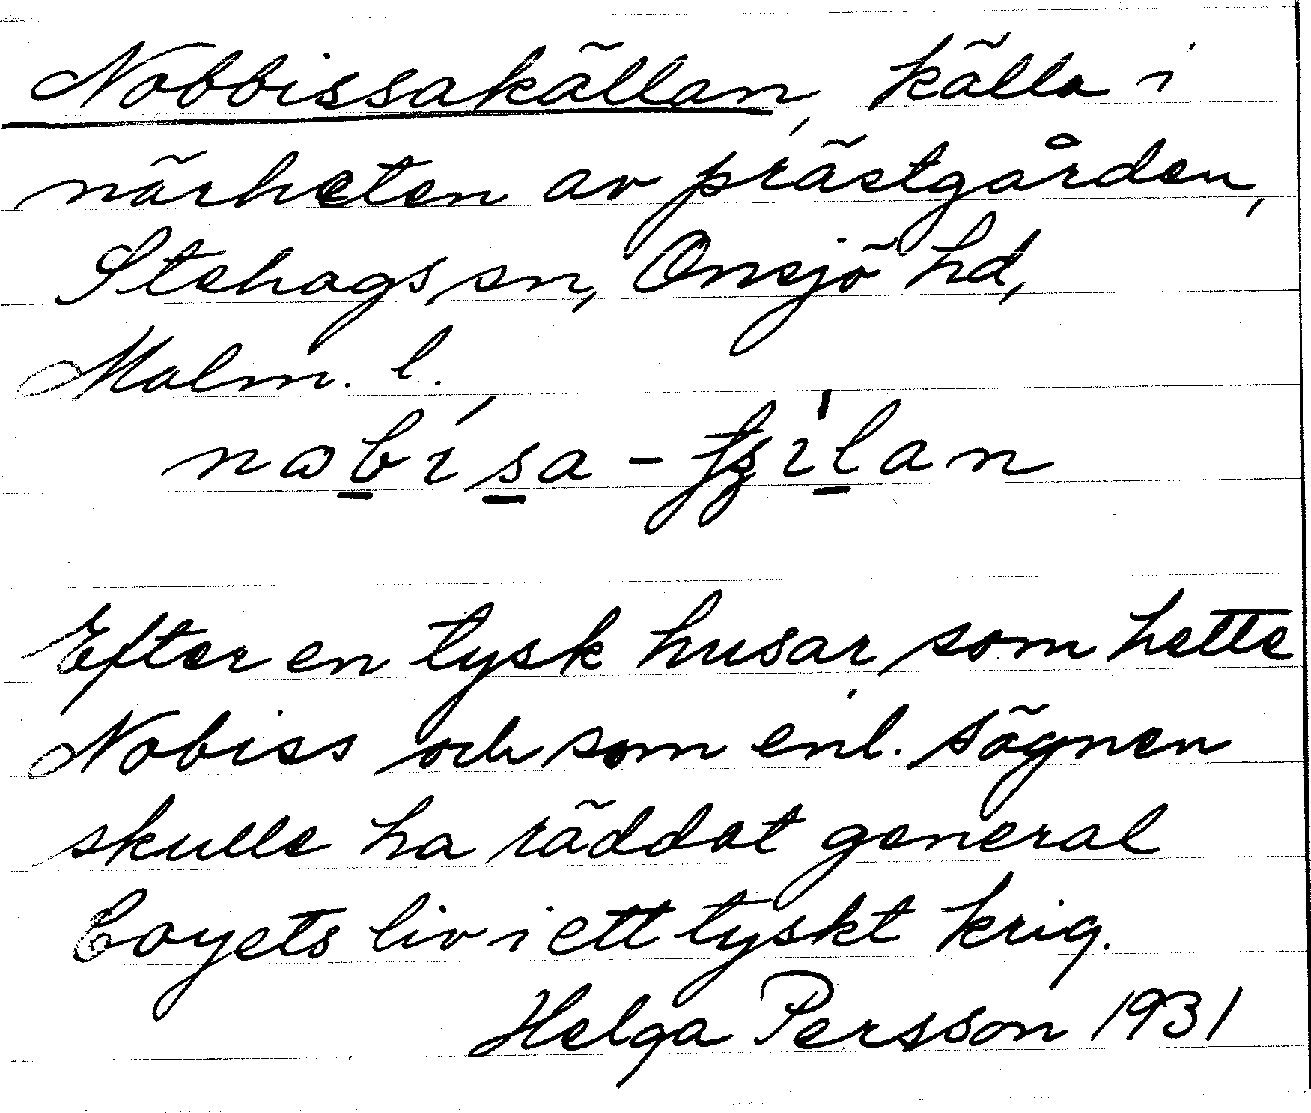 Nobbissakällan, källa i
närheten av prästgården,
Stehags sn, Onsjö hd,
Malm. l.
Efter en tysk husar som hette
Nobiss och som enl. sägnen
skulle ha räddat general
Coyets liv i ett tyskt krig.
Helga Persson 1931